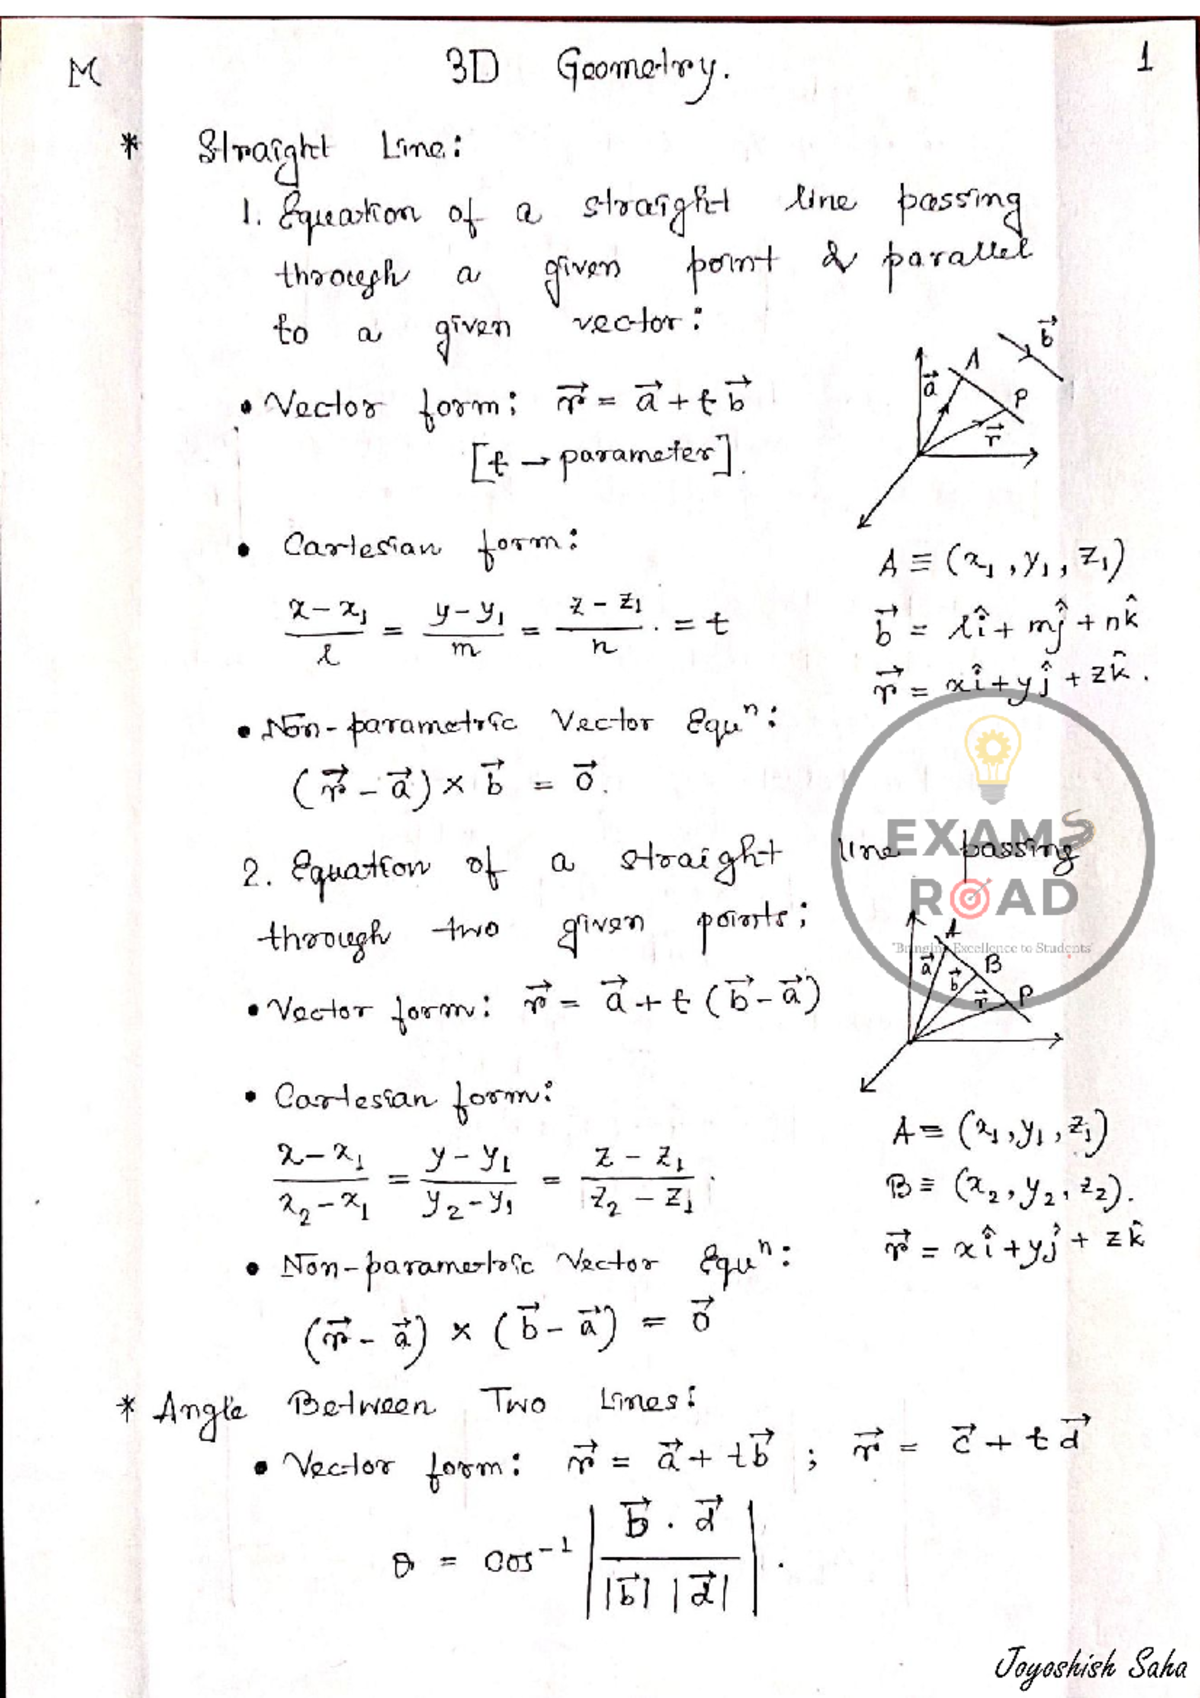 M 3D Geometry. 1
* Straight Line:
1. Equation of a straight line passing
through a given point & parallel
to a given vector:
b⃗
A
a⃗
P
r⃗
• Vector form: r⃗ = a⃗ + t b⃗
[t → parameter].
• Cartesian form:
A ≡ (x₁, y₁, z₁)
(x - x₁)/l = (y - y₁)/m = (z - z₁)/n . = t
b⃗ = lî + mĵ + nk̂
r⃗ = xî + yĵ + zk̂.
• Non-parametric Vector Equⁿ:
(r⃗ - a⃗) × b⃗ = 0⃗.
EXAMS
ROAD
"Bringing Excellence to Students"
2. Equation of a straight line passing
through two given points:
A
a⃗
B
b⃗
r⃗
P
• Vector form: r⃗ = a⃗ + t (b⃗ - a⃗)
• Cartesian form:
A ≡ (x₁, y₁, z₁)
(x - x₁)/(x₂ - x₁) = (y - y₁)/(y₂ - y₁) = (z - z₁)/(z₂ - z₁).
B ≡ (x₂, y₂, z₂).
r⃗ = xî + yĵ + zk̂
• Non-parametric Vector Equⁿ:
(r⃗ - a⃗) × (b⃗ - a⃗) = 0⃗
* Angle Between Two Lines:
• Vector form: r⃗ = a⃗ + t b⃗ ; r⃗ = c⃗ + t d⃗
θ = cos⁻¹ | (b⃗ . d⃗)/(|b⃗| |d⃗|) | .
Joyoshish Saha